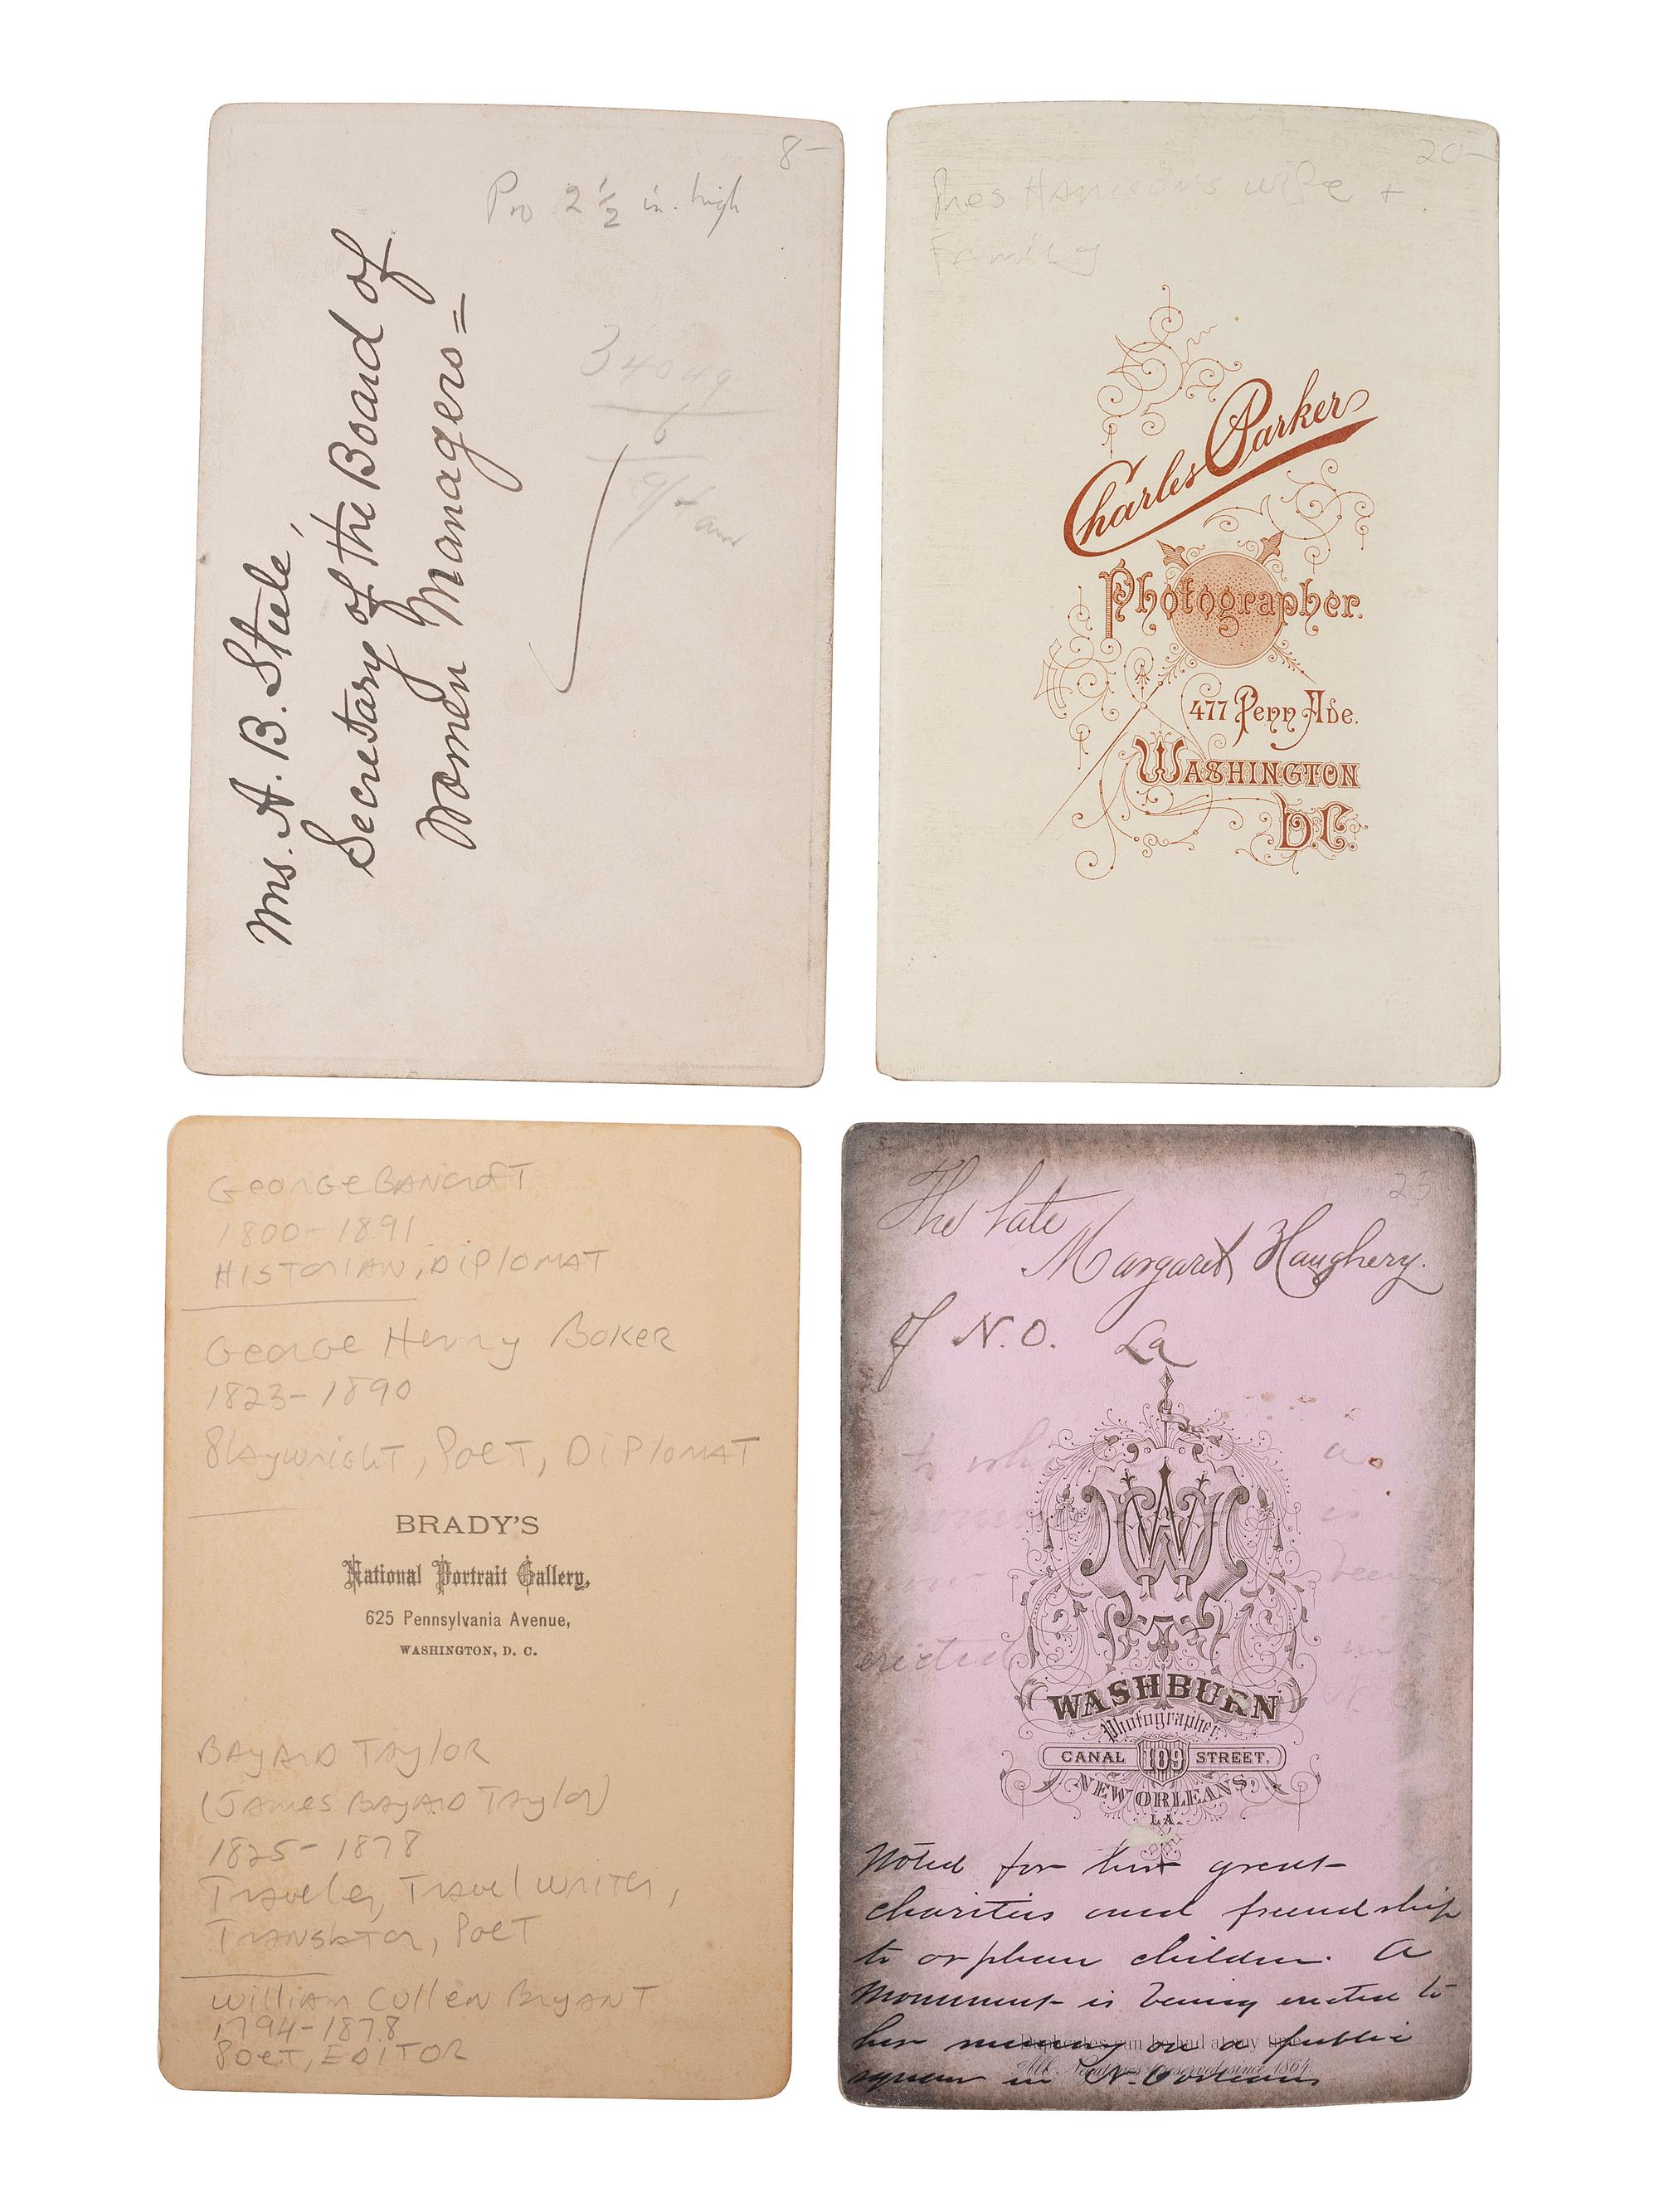 8-
Pro 2 1/2 in. high
Mrs. A. B. Steele,
Secretary of the Board of
Women Managers=
34049
6
20-
Pres Harrison's wife +
Family
Charles Parker
Photographer.
477 Penn Ave.
WASHINGTON
D.C.
George Bancroft
1800-1891
Historian, Diplomat
George Henry Boker
1823-1890
Playwright, Poet, Diplomat
BRADY'S
National Portrait Gallery,
625 Pennsylvania Avenue,
WASHINGTON, D. C.
Bayard Taylor
(James Bayard Taylor)
1825-1878
Traveler, Travel writer,
Translator, Poet
William Cullen Bryant
1794-1878
Poet, Editor
25
The late
Margaret Haughery.
of N.O. La
to a
is
been
erected in
W
WASHBURN
Photographer
CANAL 109 STREET.
NEW ORLEANS,
LA.
Noted for her great
charities and friendship
to orphan children. A
Monument is being erected to
her memory on a public
Duplicates can be had at any time
square in N. Orleans
All Negatives Preserved since 1864.